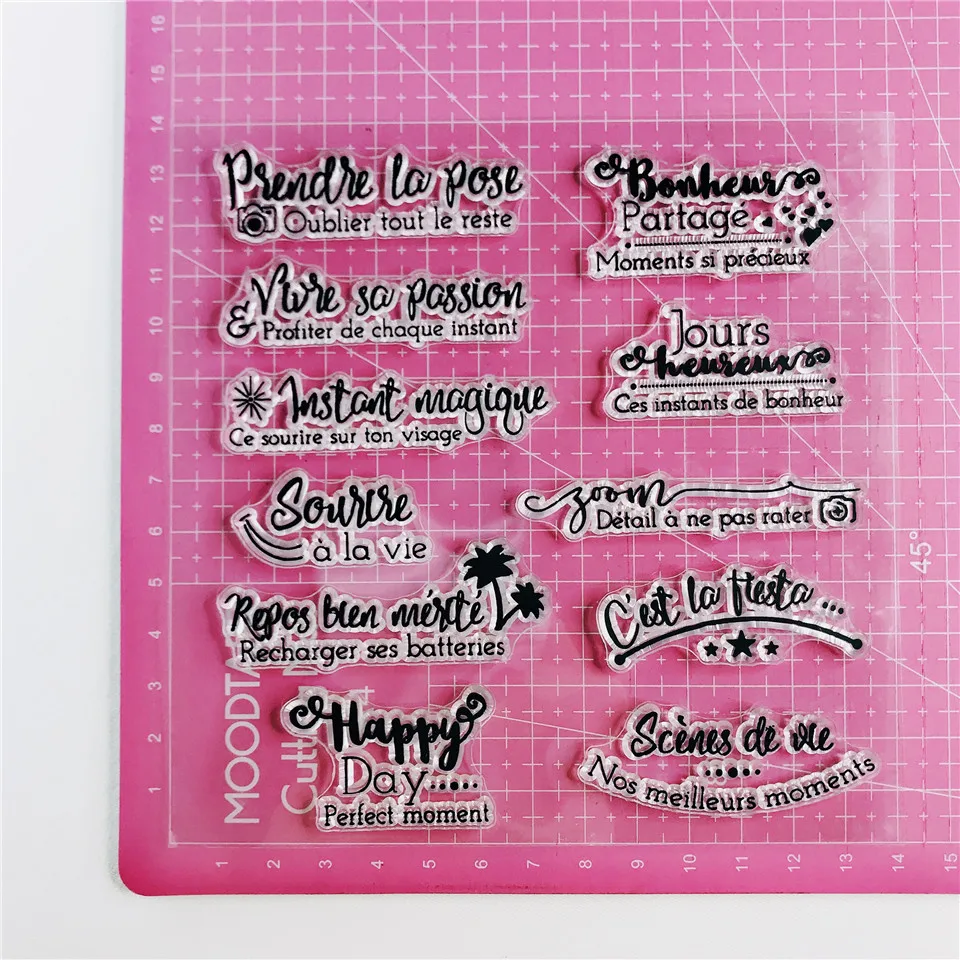 Prendre la pose
Oublier tout le reste
Vivre sa passion
& Profiter de chaque instant
Instant magique
Ce sourire sur ton visage
Sourire
à la vie
Repos bien mérité
Recharger ses batteries
Happy
Day
Perfect moment
Bonheur
Partagé
Moments si précieux
Jours
heureux
Ces instants de bonheur
zoom
Détail à ne pas rater
C'est la fiesta ...
Scènes de vie
Nos meilleurs moments
16
15
14
13
12
11
10
9
8
7
6
5
4
3
2
1
1 2 3 4 5 6 7 8 9 10 11 12 13 15
45°
MOODTA
Cutt